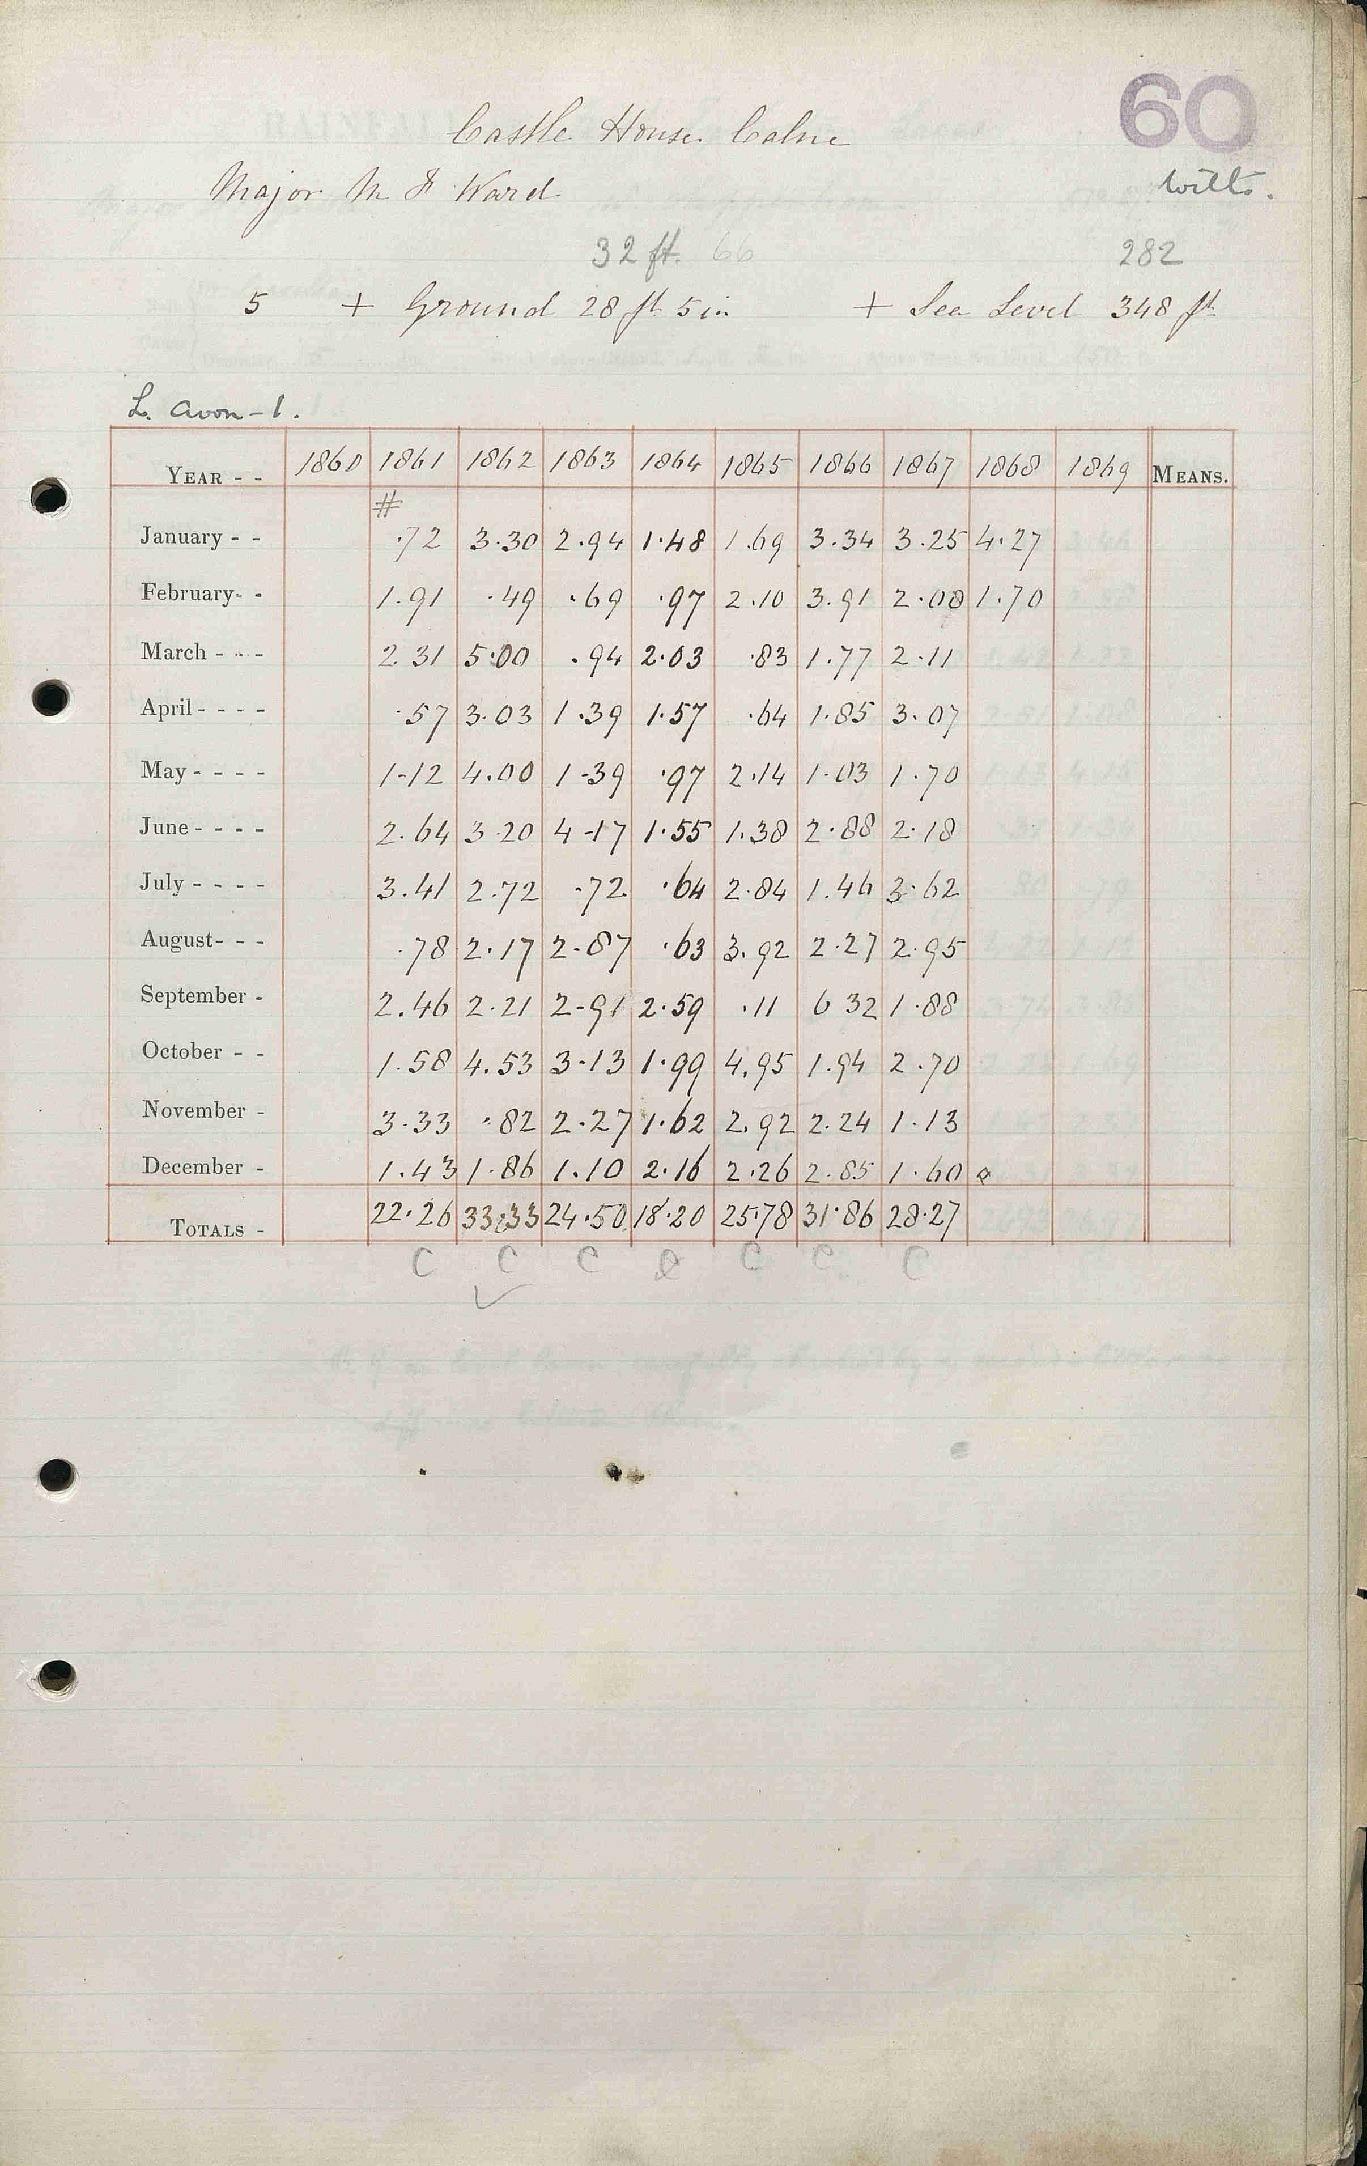 60
Castle House Calne
Major M F Ward Wilts.
32 ft. 66 282
5 + Ground 28 ft 5 in + Sea Level 348 ft
L. Avon - 1.
YEAR - - 1860 1861 1862 1863 1864 1865 1866 1867 1868 1869 MEANS.
#
January - - .72 3.30 2.94 1.48 1.69 3.34 3.25 4.27
February - - 1.91 .49 .69 .97 2.10 3.91 2.00 1.70
March - - - 2 31 5.00 .94 2.03 .83 1.77 2.11
April - - - - .57 3.03 1.39 1.57 .64 1.85 3.07
May - - - - 1-12 4.00 1-39 .97 2.14 1.03 1.70
June - - - - 2.64 3 20 4-17 1.55 1.38 2.88 2.18
July - - - - 3.41 2.72 .72 .64 2.84 1.46 3.62
August - - - .78 2.17 2-87 .63 3.92 2.27 2.95
September - 2.46 2.21 2-91 2.59 .11 6 32 1.88
October - - 1.58 4.53 3.13 1.99 4.95 1.94 2.70
November - 3.33 .82 2.27 1.62 2.92 2.24 1.13
December - 1.43 1.86 1.10 2.16 2.26 2.85 1.60
TOTALS - 22.26 33.33 24.50 18.20 25.78 31.86 28.27
C C C C C C